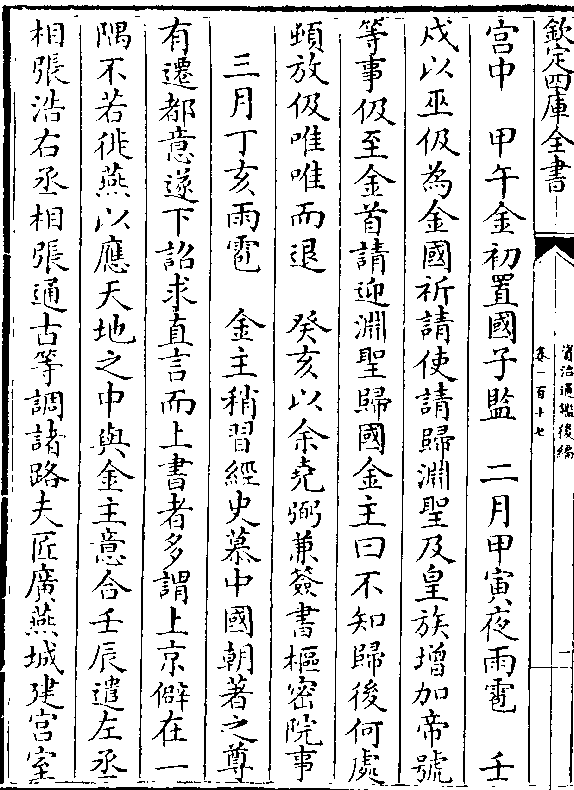 欽定四庫全書
資治通鑑後編
卷一百十七
宫中　甲午金初置國子監　二月甲寅夜雨雹　壬
戍以巫伋為金國祈請使請歸淵聖及皇族增加帝號
等事伋至金首請迎淵聖歸國金主曰不知歸後何處
頓放伋唯唯而退　癸亥以余堯弼兼簽書樞密院事
三月丁亥雨雹　金主稍習經史慕中國朝著之尊
有遷都意遂下詔求直言而上書者多謂上京僻在一
隅不若徙燕以應天地之中與金主意合壬辰遣左丞
相張浩右丞相張通古等調諸路夫匠廣燕城建宫室